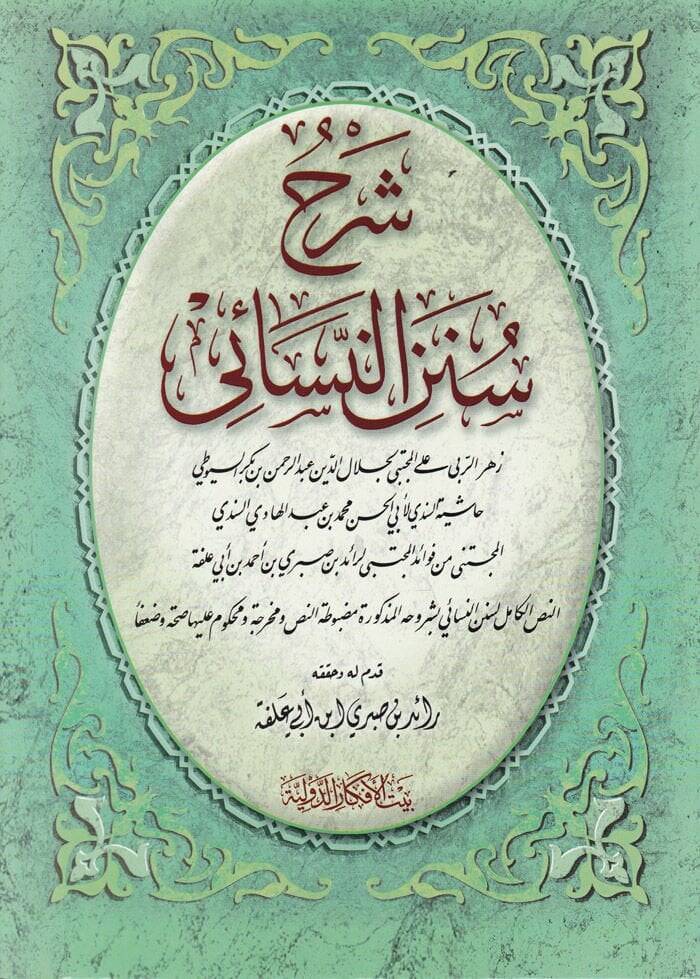 شَرْحُ
سُنَنِ النَّسَائِي
زهر الربى على المجتبى لجلال الدين عبد الرحمن بن بكر السيوطي
حاشية السندي لأبي الحسن محمد بن عبد الهادي السندي
المجتنى من فوائد المجتبى لرائد بن صبري بن أحمد بن أبي علفة
النص الكامل لسنن النسائي بشروحه المذكورة مضبوطة النص ومخرجة ومحكوم عليها صحة وضعفاً
قدم له وحققه
رائد بن صبري ابن أبي علفة
بيت الأفكار الدولية